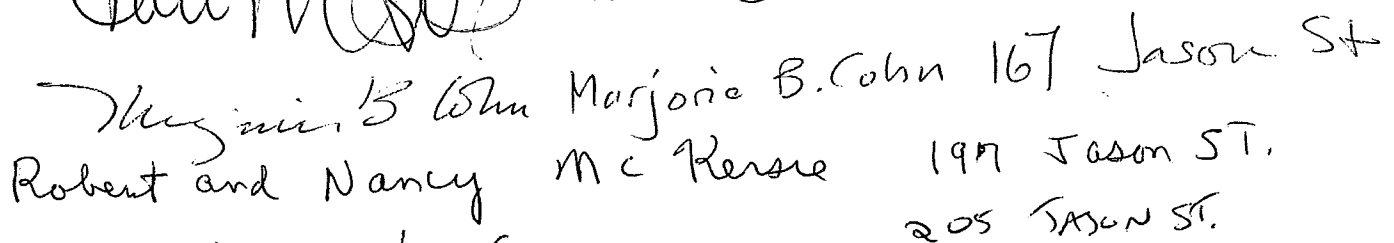 Marjorie B Cohn Marjorie B. Cohn 167 Jason St
Robert and Nancy McKersie 197 Jason ST.
205 JASON ST.